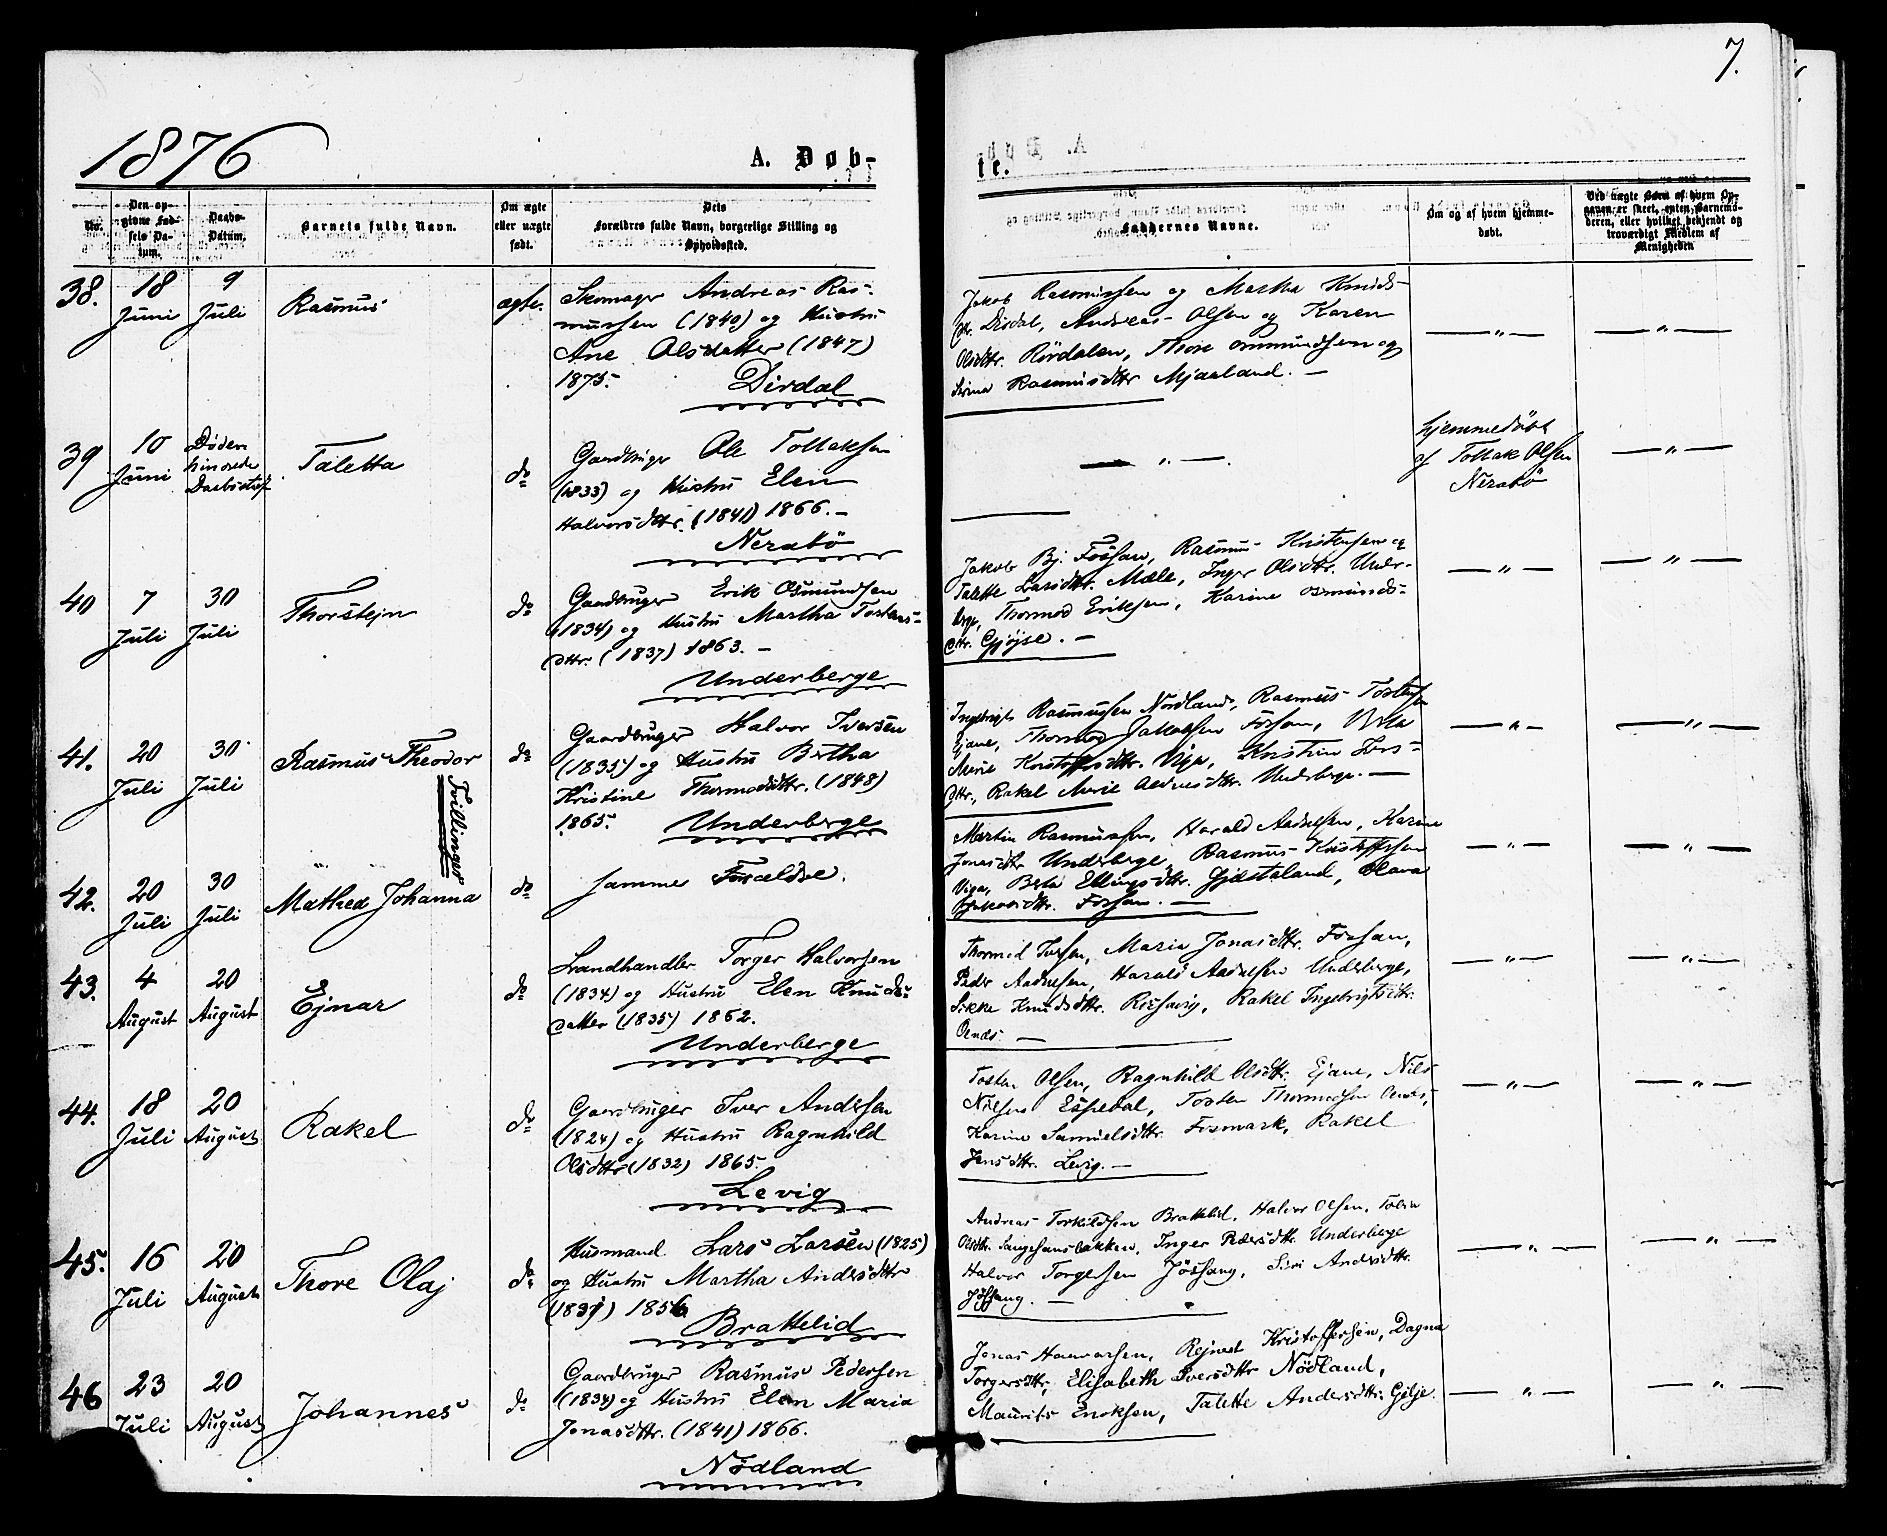 7.
1876
A. Døb-
te.
No.
Den op-
givne Fød-
sels Da-
tum.
Daabs-
Datum.
Barnets fulde Navn.
Om ægte
eller uægte
født.
Dets
Forældres fulde Navn, borgerlige Stilling og
Opholdssted.
Faddernes Navne.
Om og af hvem hjemme-
døbt.
Ved uægte Børn af hvem Op-
gaven er skeet, enten Barnemo-
deren, eller hvilket bekjendt og
troværdigt Medlem af
Menigheden
38.
18
Juni
9
Juli
Rasmus
ægte.
Skomager Andreas Ras-
mussen (1840) og Hustru
Ane Olsdatter (1847)
1875.
Dirdal
Jakob Rasmussen og Martha Knuds-
dtr. Dirdal, Andreas Olsen og Karen
Olsdtr. Rördalen, Thore Ommundsen og
Sirina Rasmusdttr Mjaaland. —
— " —
— " —
39
10
Juni
Døden
hinsrede
Daabsattest
Taletta
do
Gaardbruger Ole Tollaksen
(1833) og Hustru Elen
Halvorsdttr. (1841) 1866. —
Nerabö
— " —.
hjemmedöbt
af Tollak Olsen
Nerabö
— " —
40
7
Juli
30
Juli
Thorstejn
do
Gaardbruger Erik Osmundsen
(1834) og Hustru Martha Tostens-
dttr. (1837) 1863. —
Underberge
Jakob Bj. Fossan, Rasmus Kristensen og
Talette Larsdttr. Mæle, Inger Olsdttr. Under-
berge, Thormod Eriksen, Karine Osmunds-
dttr. Gjöjse. —
— " —
— " —
41.
20
Juli
30
Juli
Rasmus Theodor
Tvillinger
do
Gaardbruger Halvor Iversen
(1835) og Hustru Bertha
Kristine Thormodsdttr. (1848)
1865.
Underberge
Ingebrigt Rasmussen Nordland, Rasmus Tostensen
Ejane, Thormod Jakobsen Fossan, Berta
Marie Kristoffsdttr. Viga, Kristine Lars-
dttr., Rakel Marie Aadnesdttr. Underberge. —
— " —
— " —
42.
20
Juli
30
Juli
Mathea Johanna
do
samme Forældre.
Martin Rasmussen, Harald Aadnesen, Karine
Jonasdtr Underberge, Rasmus Kristoffersen
Viga, Berta Ellingsdttr. Gjilstaland, Olava
Jakobsdttr. Fossan. —
— " —
— " —
43.
4
August
20
August
Ejnar
do
Landhandler Torger Halvorsen
(1834) og Hustru Elen Knuds-
datter (1835) 1862.
Underberge
Thormod Iversen, Maria Jonasdttr. Fossan,
Peder Aadnesen, Harald Aadnesen Underberge,
Sikke Knudsdttr. Rossavig, Rakel Ingebrigtsdttr.
Oenæs. —
— " —
— " —
44.
18
Juli
20
August
Rakel
do
Gaardbruger Iver Andersen
(1824) og Hustru Ragnhild
Olsdttr (1832) 1865.
Levig
Tosten Olsen, Ragnhild Olsdttr. Ejane, Nils
Nilsen Espedal, Tosten Thormodsen Oenæs,
Karine Samuelsdttr. Fosmark, Rakel
Jensdttr. Levig. —
— " —
— " —
45.
16
Juli
20
August
Thore Olaj
do
Husmand Lars Larsen (1825)
og Hustru Martha Andersdttr
(1831) 1856.
Brattelid
Andreas Torkildsen Brattelid, Halvor Olsen, Tobia
Olsdttr. Haugesansbakken, Inger Pedersdttr. Underberge
Halvor Torgersen Jössang, Siri Andersdttr.
Jössang. —
— " —
— " —
46
23
Juli
20
August
Johannes
do
Gaardbruger Rasmus Pedersen
(1834) og Hustru Elen Maria
Jonasdttr. (1841) 1866.
Nödland
Jonas Haavarsen, Rejnert Kristoffersen, Dagna
Torgersdttr, Elisabeth Iversdttr Nödland,
Maurits Enoksen, Talette Andersdttr. Gilje.
— " —
— " —